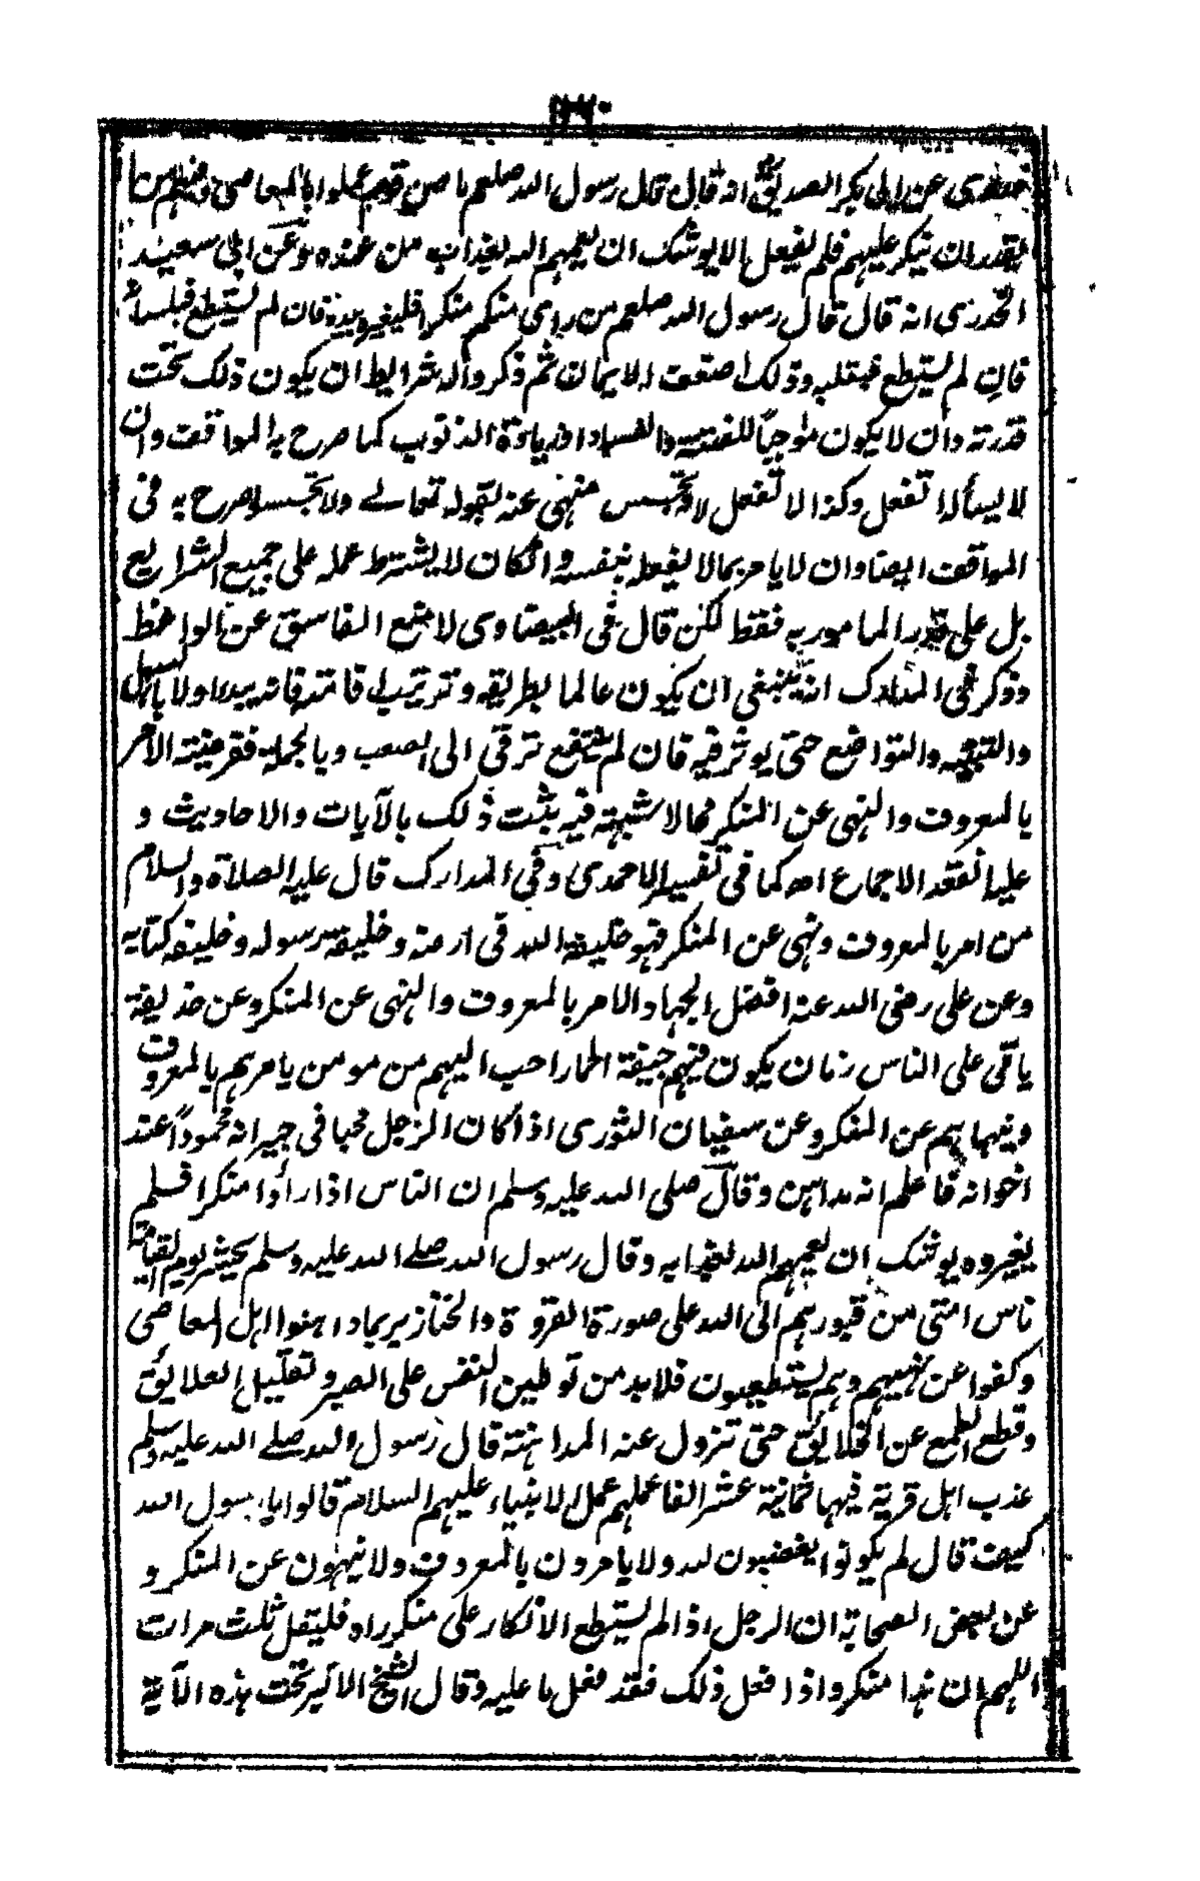 عن ابى بكر الصديق انه قال قال رسول الله صلعم ما من قوم عملوا بالمعاصى وفيهم من
يقدر ان ينكر عليهم فلم يفعل الا يوشك ان يعمهم الله بعذاب من عنده وعن ابى سعيد
الخدرى انه قال قال رسول الله صلعم من راى منكم منكرا فليغيره بيده فان لم يستطع فبلسانه
فان لم يستطع فبقلبه وذلك اضعف الايمان ثم ذكروا له شرايط ان يكون ذلك تحت
قدرته وان لا يكون موجبًا للفتنة والفساد وزيادة الذنوب كما صرح به المواقف وان
لا يسأل لا تفعل وكذا لا تفعل لا تجسس منهى عنه لقوله تعالے ولا تجسسوا صرح به فى
المواقف ايضا وان لا يامر بما لا يفعله بنفسه وان كان لا يشترط عمله على جميع الشرايع
بل على قدر المامور به فقط لكن قال فى البيضاوى لا يمنع الفاسق عن الواعظ
وذكر فى المدارك انه ينبغى ان يكون عالما بطريقه وترتيب اقامته فانه يبدا اولا بالسهل
والتوجيه والتواضع حتى يوثر فيه فان لم ينتفع ترقى الى الصعب وبالجملة ففرضية الامر
بالمعروف والنهى عن المنكر مما لا شبهة فيه يثبت ذلك بالآيات والاحاديث و
عليه انعقد الاجماع اه كما فى تفسير الاحمدى وفى المدارك قال عليه الصلاة والسلام
من امر بالمعروف ونهى عن المنكر فهو خليفة الله فى ارضه وخليفة رسوله وخليفة كتابه
وعن على رضى الله عنه افضل الجهاد الامر بالمعروف والنهى عن المنكر وعن حذيفة
ياتى على الناس زمان يكون فيهم جيفة الحمار احب اليهم من مومن يامرهم بالمعروف
وينهاهم عن المنكر وعن سفيان الثورى اذا كان الرجل محبا فى جيرانه محمودًا عند
اخوانه فاعلم انه مداهن وقال صلى الله عليه وسلم ان الناس اذا رأوا منكرا فلم
يغيروه يوشك ان يعمهم الله بعذابه وقال رسول الله صلے الله عليه وسلم يحشر يوم القيامة
ناس امتى من قبورهم الى الله على صورة القردة والخنازير بما داهنوا اهل المعاصى
وكفوا عن نهيهم وهم يستطيعون فلا بد من توطين النفس على الصبر وتقليل العلائق
وقطع الطمع عن الخلائق حتى تزول عنه المداهنة قال رسول الله صلے الله عليه وسلم
عذب اهل قرية فيها ثمانية عشر الفا عملهم عمل الانبياء عليهم السلام قالوا يا رسول الله
كيف قال لم يكونوا يغضبون لله ولا يامرون بالمعروف ولا ينهون عن المنكر و
عن بعض الصحابة ان الرجل اذا لم يستطع الانكار على منكر راه فليقل ثلث مرات
اللهم ان هذا منكر واذا فعل ذلك فقد فعل ما عليه وقال الشيخ الاكبر تحت هذه الآية